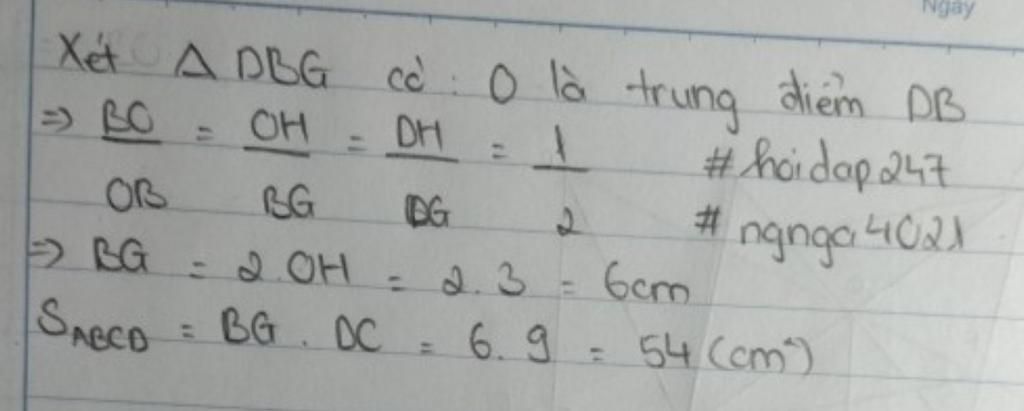 Ngày
Xét Δ DBG có : O là trung điểm DB
=> BO/OB = OH/BG = DH/DG = 1/2 #hoidap247
#ngnga4021
=> BG = 2.OH = 2.3 = 6cm
SABCD = BG . DC = 6.9 = 54 (cm²)